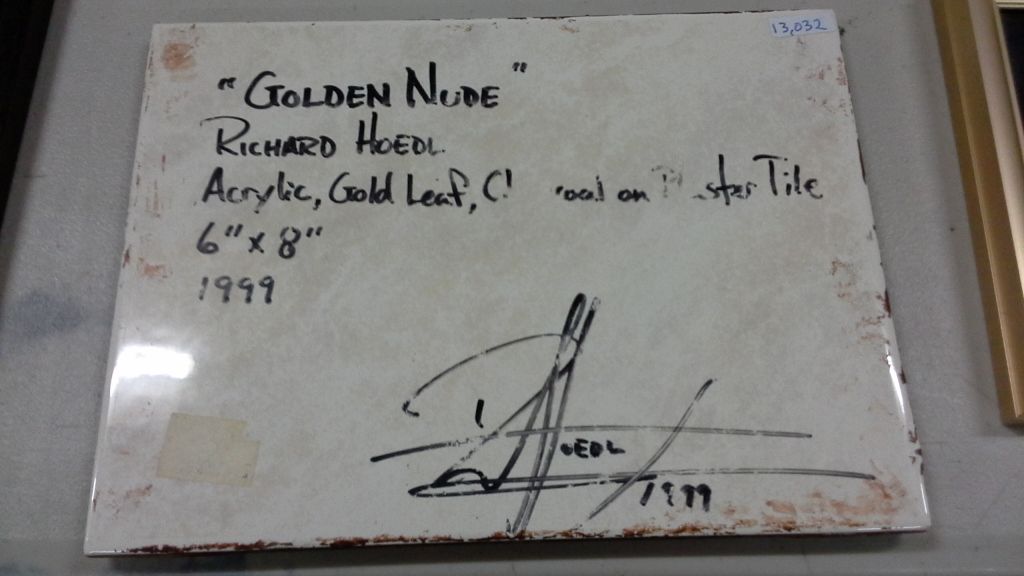 13,032
"GOLDEN NUDE"
RICHARD HOEDL
Acrylic, Gold Leaf, on Tile
6" x 8"
1999
HOEDL
1999